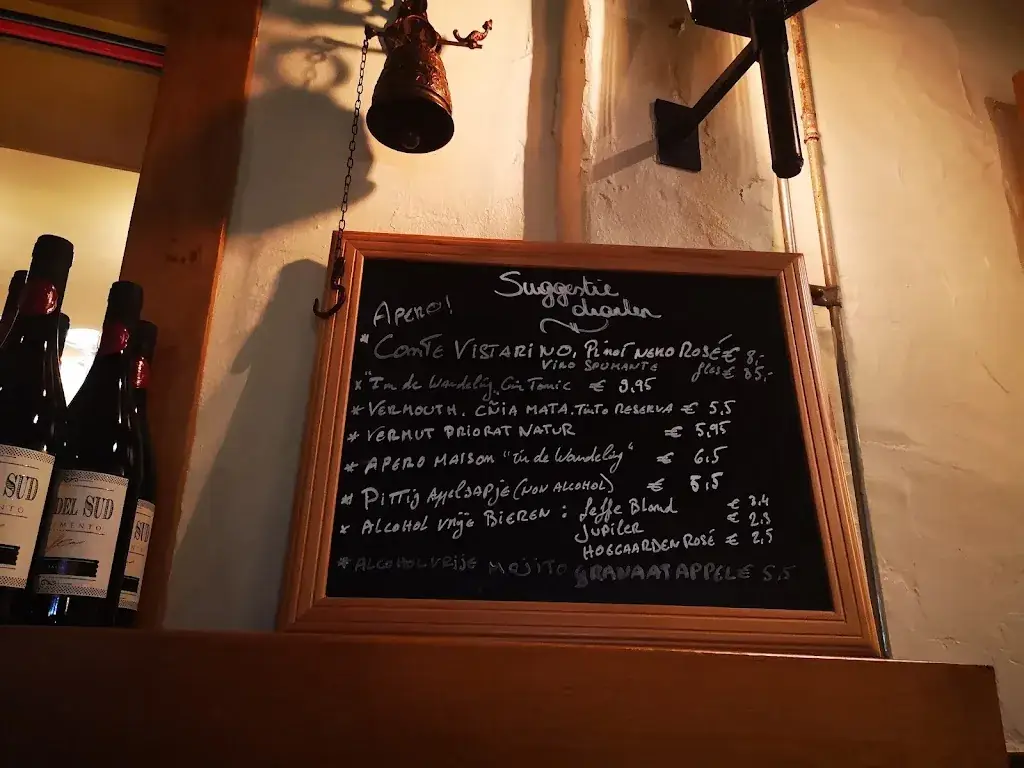 Suggestie
dranken
APERO!
* COMTE VISTARINO, PINOT NERO ROSÉ € 8,-
VINO SPUMANTE fles € 35,-
* "In de Wandeling" Gin Tonic € 9,95
* VERMOUTH. CÑIA MATA. TINTO RESERVA € 5,5
* VERMUT PRIORAT NATUR € 5,95
* APERO MAISON "In de Wandeling" € 6,5
* PITTIG APPELSAPJE (NON ALCOHOL) € 5,5
* ALCOHOL VRIJE BIEREN : Leffe Blond € 3,4
JUPILER € 2,3
HOEGAARDEN ROSÉ € 2,5
* ALCOHOLVRIJE MOJITO GRANAATAPPEL € 5,5
SUD
DEL SUD